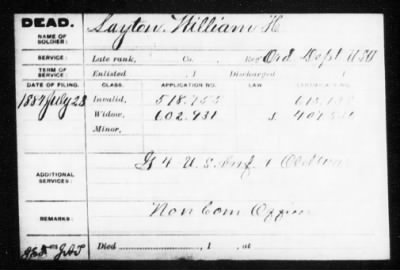 DEAD.
NAME OF SOLDIER:
Layton, William H
SERVICE:
Late rank, Co. Reg't Ord Dept USA
TERM OF SERVICE:
Enlisted , 1 Discharged , 1
DATE OF FILING. CLASS. APPLICATION NO. LAW
1884 July 23 Invalid, 518.755
Widow, 602.931
Minor,
ADDITIONAL SERVICES:
G 4 U.S. Inf.
REMARKS:
Non Com
Died , 1 , at